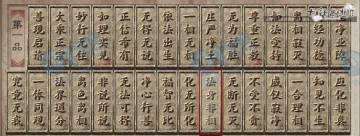 第品
善现启请
大乘正宗
妙行无住
如理实见
正信希有
无得无说
依法出生
一相无相
庄严净土
无为福胜
尊重正教
如法受持
离相寂灭
持经功德
能净业障
究竟无我
一体同观
法界通分
离色离相
非说所说
无法可得
净心行善
福智无比
化无所化
法身非相
无断无灭
不受不贪
威仪寂净
一合理相
知见不生
应化非真